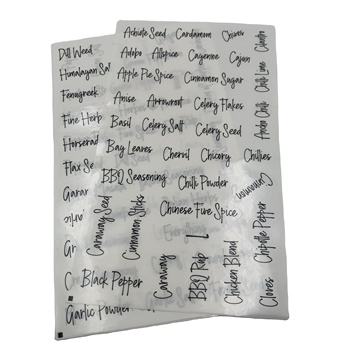 Achiote Seed Cardamom Chives
Cilantro
Adobo Allspice Cayenne Cajun
Apple Pie Spice Cinnamon Sugar
Chili Lime
Anise Arrowroot Celery Flakes
Ancho Chili
Basil Celery Salt Celery Seed
Bay Leaves Chervil Chicory Chillies
BBQ Seasoning Chili Powder
Cinnamon
Caraway Seed
Cinnamon Sticks
Chinese Five Spice
Caraway
BBQ Rub
Chicken Blend
Chipotle Pepper
Cloves
Black Pepper
Dill Weed
Himalayan Sal
Fenugreek
Fine Herb
Horserad
Flax Se
Garam
Garlic Powder